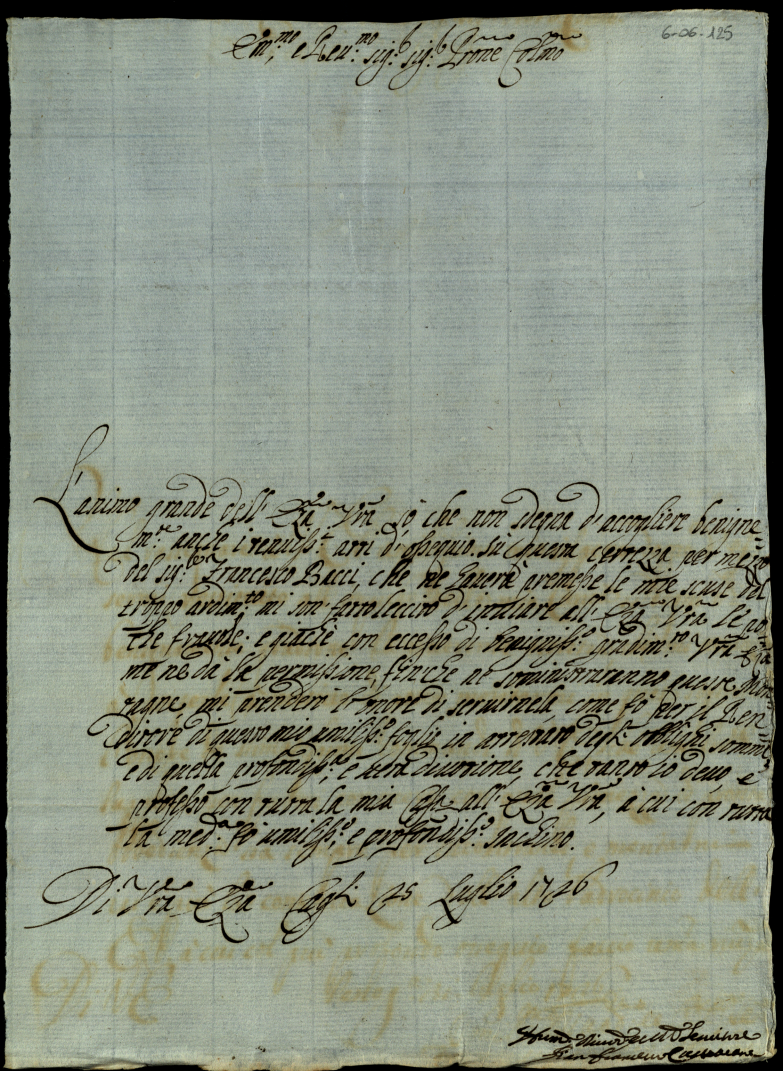 6-06-125
Em.mo e Reu.mo sig.r sig.r Prone Colmo
L'animo grande dell' Eza Vra sò che non sdegna d'accogliere benigne=
m.te anche i tenuiss.i atti d'ossequio. Sù questa certezza per mezzo
del sig.r Francesco Bacci, che ne haverà premesse le mie scuse del
troppo ardim.to mi son fatto lecito d'inuiare all' Eza Vra le po=
che fraude; e giache con eccesso di benigniss.o gradim.to Vra Eza
me nè dà la permissione, finche ne somministraranno queste Mon=
tagne, mi prenderò l'onore di seruirnela, come fò per il Ren=
ditore di questo mio umiliss.o foglio in attestato degl' obblighi sommi
e di questa profondiss.a e vera diuozione, che tanto io deuo, e
professo con tutta la mia Casa all' Eza Vra, à cui con tutta
la med.a fò umiliss.o, e profondiss.o inchino.
Di Vra Eza Cagli 25 Luglio 1726
Seruitore
Gian Francesco